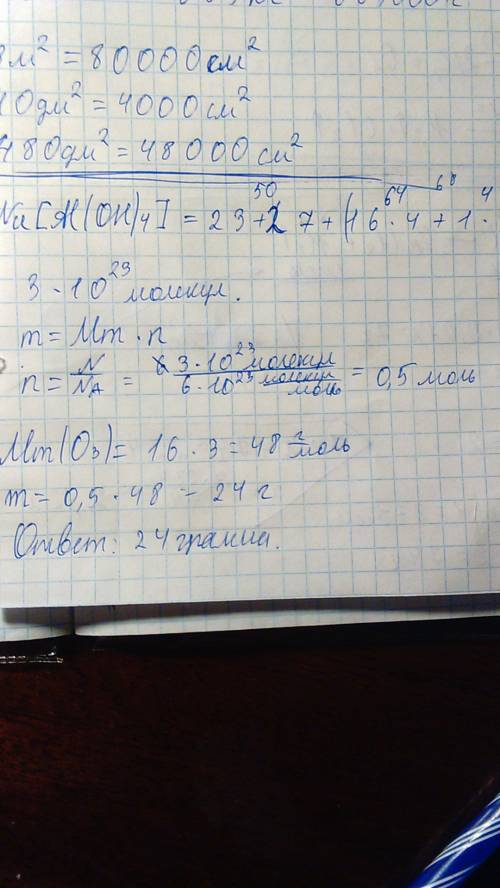 8м² = 80000см²
40дм² = 4000см²
480дм² = 48000см²
50 64 68 4
Na[Al(OH)₄] = 23+27+(16·4+1·
3·10²³молекул.
m = Mm · n
n = N/NA = 3·10²³молекул / 6·10²³ молекул/моль = 0,5 моль
Mm(O₃) = 16·3 = 48 г/моль
m = 0,5·48 = 24 г
Ответ: 24 грамма.